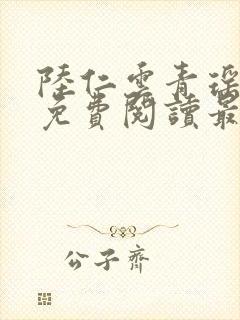 陸仁雲青瑶
免費閱讀最
公子齊